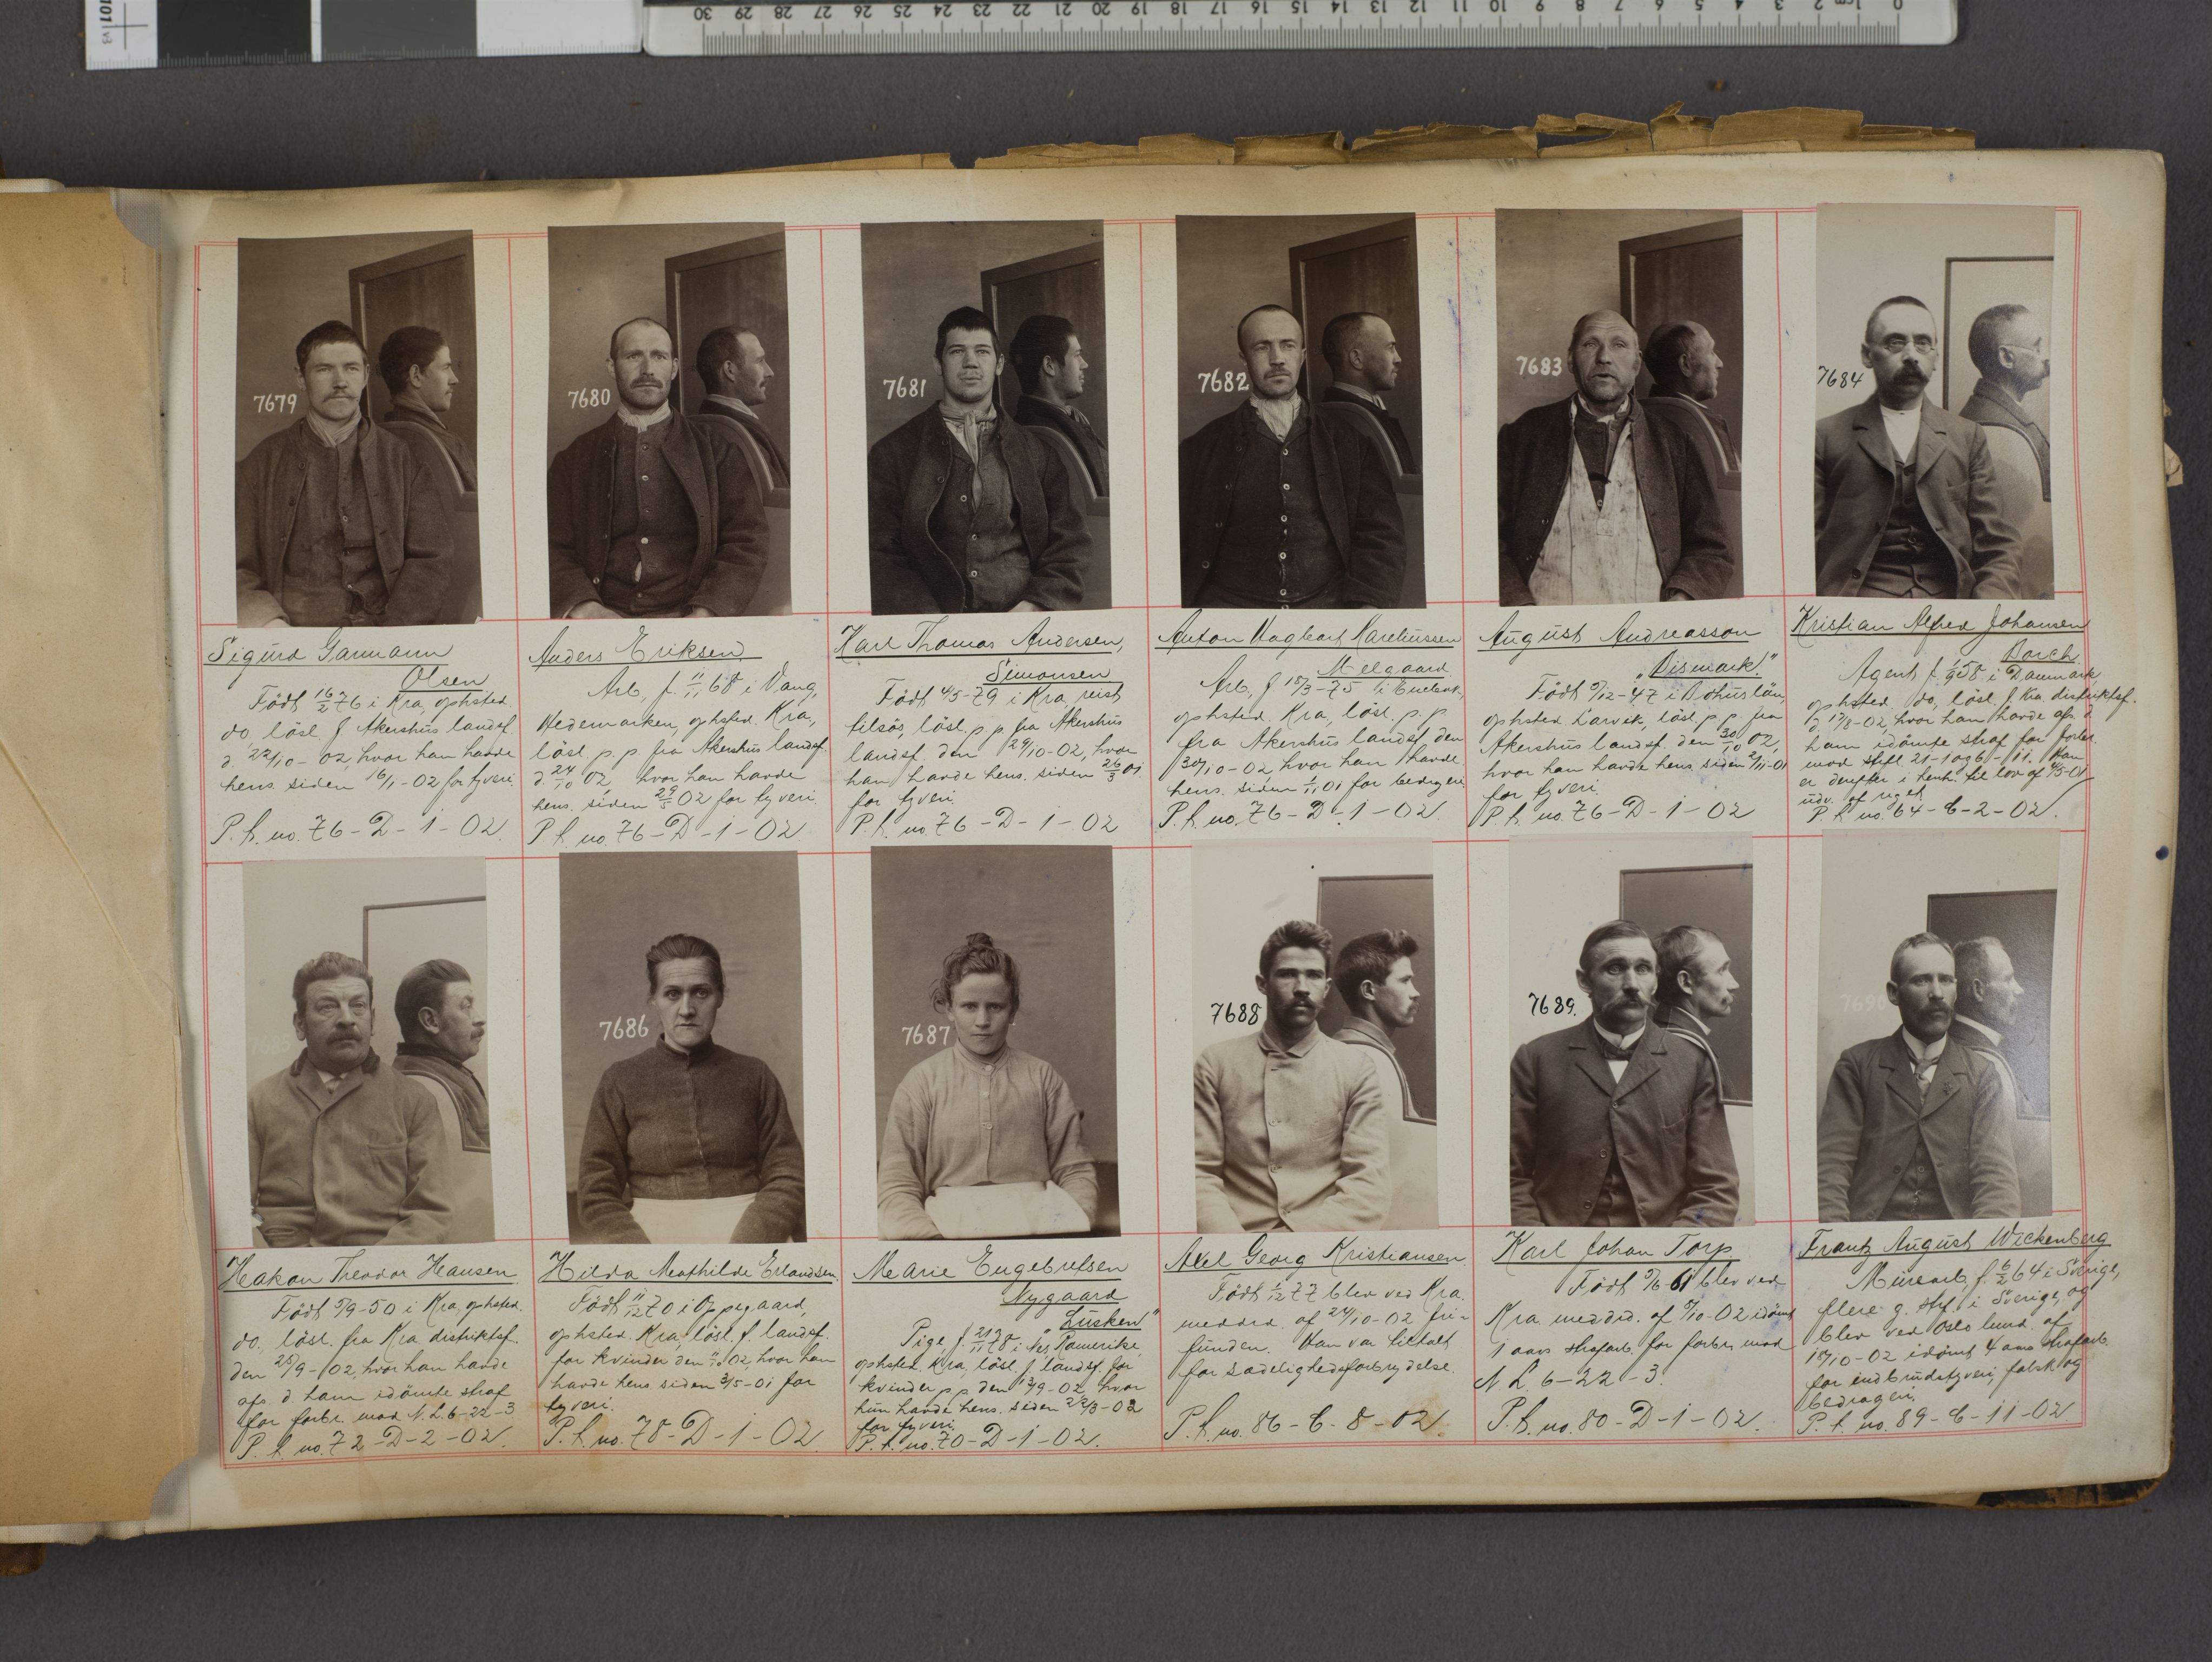 101 v3
30 29 28 27 26 25 24 23 22 21 20 19 18 17 16 15 14 13 12 11 10 9 8 7 6 5 4 3 2 1 cm 0
7679
Sigurd Garmann
Olsen
Födt 16/2 76 i Kra, ophsted.
do, lösl. f Akershus landsf.
d. 22/10-02, hvor han havde
hens. siden 16/1-02 for tyveri.
P. h. no. 76-D-1-02.
7680
Anders Eriksen
Arb, f. 11/11 68 i Vang,
Hedemarken, ophsted. Kra,
lösl. p. p. fra Akershus landsf.
d. 24/10 02, hvor han havde
hens. siden 29/5 02 for tyveri.
P. h. no. 76-D-1-02.
7681
Karl Thomas Andersen,
Simonsen
Födt 4/5-79 i Kra, reist
tilsös, lösl. p. p. fra Akershus
landsf. den 24/10-02, hvor
han havde hens. siden 26/3 01
for tyveri.
P. h. no. 76-D-1-02
7682
Anton Hagbart Mareliussen
Melgaard
Arb, f 18/3-75 i
ophsted. Kra, lösl. p. p.
fra Akershus landsf. den
30/10-02, hvor han havde
hens. siden 1/11 01 for bedrageri
P. h. no. 76-D-1-02.
7683
August Andreasson
"Bismark"
Födt 9/12-47 i Bohuslän,
ophsted. Larvik, lösl. p. p. fra
Akershus landsf. den 30/10 02,
hvor han havde hens. siden 2/11-01
for tyveri.
P. h. no. 76-D-1-02
7684
Kristian Alfred Johansen
Borch
Agent f. 1/9 58 i Danmark
ophsted. do, lösl. f Kra distriktsf.
d. 17/8-02, hvor han havde afs. d
ham idömte straf for forbr.
mod stfl. 21-1 og 6-11. Han
er derefter i henh. til lov af 4/5-01
udv. af riget
P. h. no. 64-C-2-02.
7685
Hakon Theodor Hansen
Födt 5/9-50 i Kra, ophsted.
do, lösl. fra Kra distriktsf.
den 25/9-02, hvor han havde
afs. d. ham idömte straf
for forbr. mod N. L. 6-22-3
P. h. no. 72-D-2-02.
7686
Hilda Mathilde Erlandsen.
Födt 11/12 70 i Oppegaard,
ophsted. Kra, lösl. f. landsf.
for kvinder den 11/10 02, hvor hun
havde hens. siden 3/5-01 for
tyveri.
P. h. no. 78-D-1-02.
7687
Marie Engebretsen
Nygaard
"Lusken"
Pige, f. 21/11 78 i Nes, Romerike,
ophsted. Kra, lösl. f. landsf. for
kvinder p. p. den 13/9-02, hvor
hun havde hens. siden 22/3-02
for tyveri.
P. h. no. 70-D-1-02.
7688
Axel Georg Kristiansen
Födt 1/12 77 blev ved Kra.
meddrd. af 24/10-02 fri-
funden. Han var tiltalt
for sædelighedsforbrydelse.
P. h. no. 86-C-8-02.
7689.
Karl Johan Torp.
Födt 9/6-61 blev ved
Kra meddrd. af 8/10-02 idömt
1 aars strafarb. for forbr. mod
N. L. 6-22-3.
P. h. no. 80-D-1-02.
7690
Frantz August Wickenberg
Murearb, f. 6/2 64 i Sverige,
flere g. stf. i Sverige, og
blev ved Oslo lmd. af
18/10-02 idömt 4 aars strafarb.
for indbrudstyveri, falsk og
bedrageri.
P. h. no. 89-C-11-02